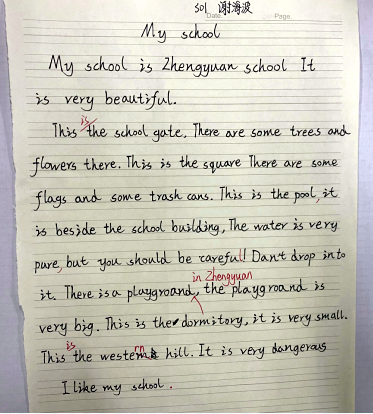 501 谢海波
Date. Page.
My school
My school is Zhengyuan school It
is very beautiful.
is
This the school gate, There are some trees and
flowers there. This is the square There are some
flags and some trash cans. This is the pool, it
is beside the school building, The water is very
pure, but you should be careful! Dan't drop into
in Zhengyuan
it. There is a playground, the playground is
very big. This is the dormitory, it is very small.
is rn
This the western hill. It is very dangerous
I like my school.